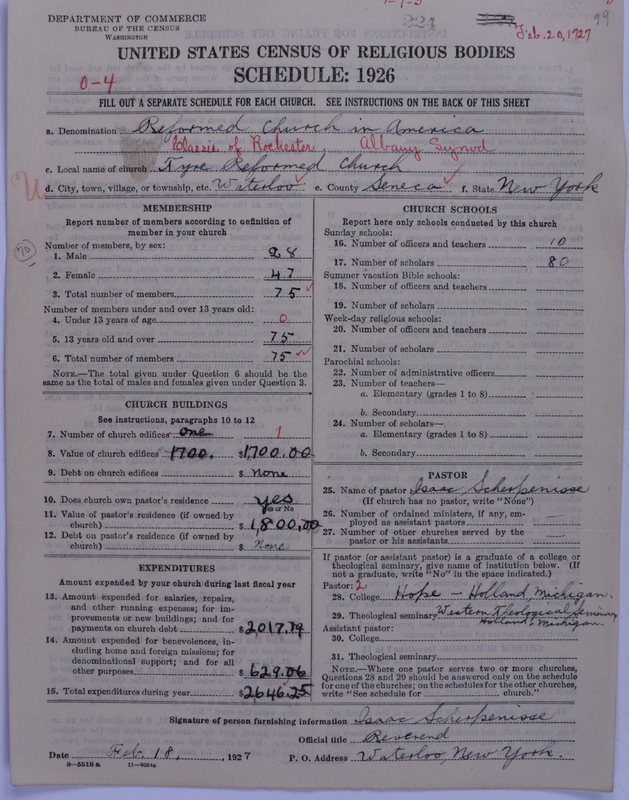 DEPARTMENT OF COMMERCE
BUREAU OF THE CENSUS
WASHINGTON
Feb. 20, 1927
UNITED STATES CENSUS OF RELIGIOUS BODIES
SCHEDULE: 1926
0-4
FILL OUT A SEPARATE SCHEDULE FOR EACH CHURCH. SEE INSTRUCTIONS ON THE BACK OF THIS SHEET
a. Denomination Reformed Church in America
Classis of Rochester, Albany Synod
c. Local name of church Tyre Reformed Church
d. City, town, village, or township, etc. Waterloo e. County Seneca f. State New York
MEMBERSHIP
Report number of members according to definition of member in your church
Number of members, by sex:
1. Male 28
2. Female 47
3. Total number of members 75
Number of members under and over 13 years old:
4. Under 13 years of age 0
5. 13 years old and over 75
6. Total number of members 75
NOTE.—The total given under Question 6 should be the same as the total of males and females given under Question 3.
CHURCH BUILDINGS
See instructions, paragraphs 10 to 12
7. Number of church edifices one 1
8. Value of church edifices 1700. $1,700.00
9. Debt on church edifices $ None
10. Does church own pastor's residence yes
Yes or No
11. Value of pastor's residence (if owned by church) $1,800,00
12. Debt on pastor's residence (if owned by church) $ None
EXPENDITURES
Amount expended by your church during last fiscal year
13. Amount expended for salaries, repairs, and other running expenses; for improvements or new buildings; and for payments on church debt $2017.19
14. Amount expended for benevolences, including home and foreign missions; for denominational support; and for all other purposes $629.06
15. Total expenditures during year $2646.25
CHURCH SCHOOLS
Report here only schools conducted by this church
Sunday schools:
16. Number of officers and teachers 10
17. Number of scholars 80
Summer vacation Bible schools:
18. Number of officers and teachers
19. Number of scholars
Week-day religious schools:
20. Number of officers and teachers
21. Number of scholars
Parochial schools:
22. Number of administrative officers
23. Number of teachers—
a. Elementary (grades 1 to 8)
b. Secondary
24. Number of scholars—
a. Elementary (grades 1 to 8)
b. Secondary
PASTOR
25. Name of pastor Isaac Scherpenisse
(If church has no pastor, write "None")
26. Number of ordained ministers, if any, employed as assistant pastors
27. Number of other churches served by the pastor or his assistants
If pastor (or assistant pastor) is a graduate of a college or theological seminary, give name of institution below. (If not a graduate, write "No" in the space indicated.)
Pastor: 2
28. College Hope — Holland, Michigan.
29. Theological seminary Western Theological Seminary
Holland, Michigan.
Assistant pastor:
30. College
31. Theological seminary
NOTE.—Where one pastor serves two or more churches, Questions 28 and 29 should be answered only on the schedule for one of the churches; on the schedules for the other churches, write "See schedule for church."
Signature of person furnishing information Isaac Scherpenisse
Official title Reverend
Date Feb. 18, 1927 P. O. Address Waterloo, New York.
8—5518a 11—9551a